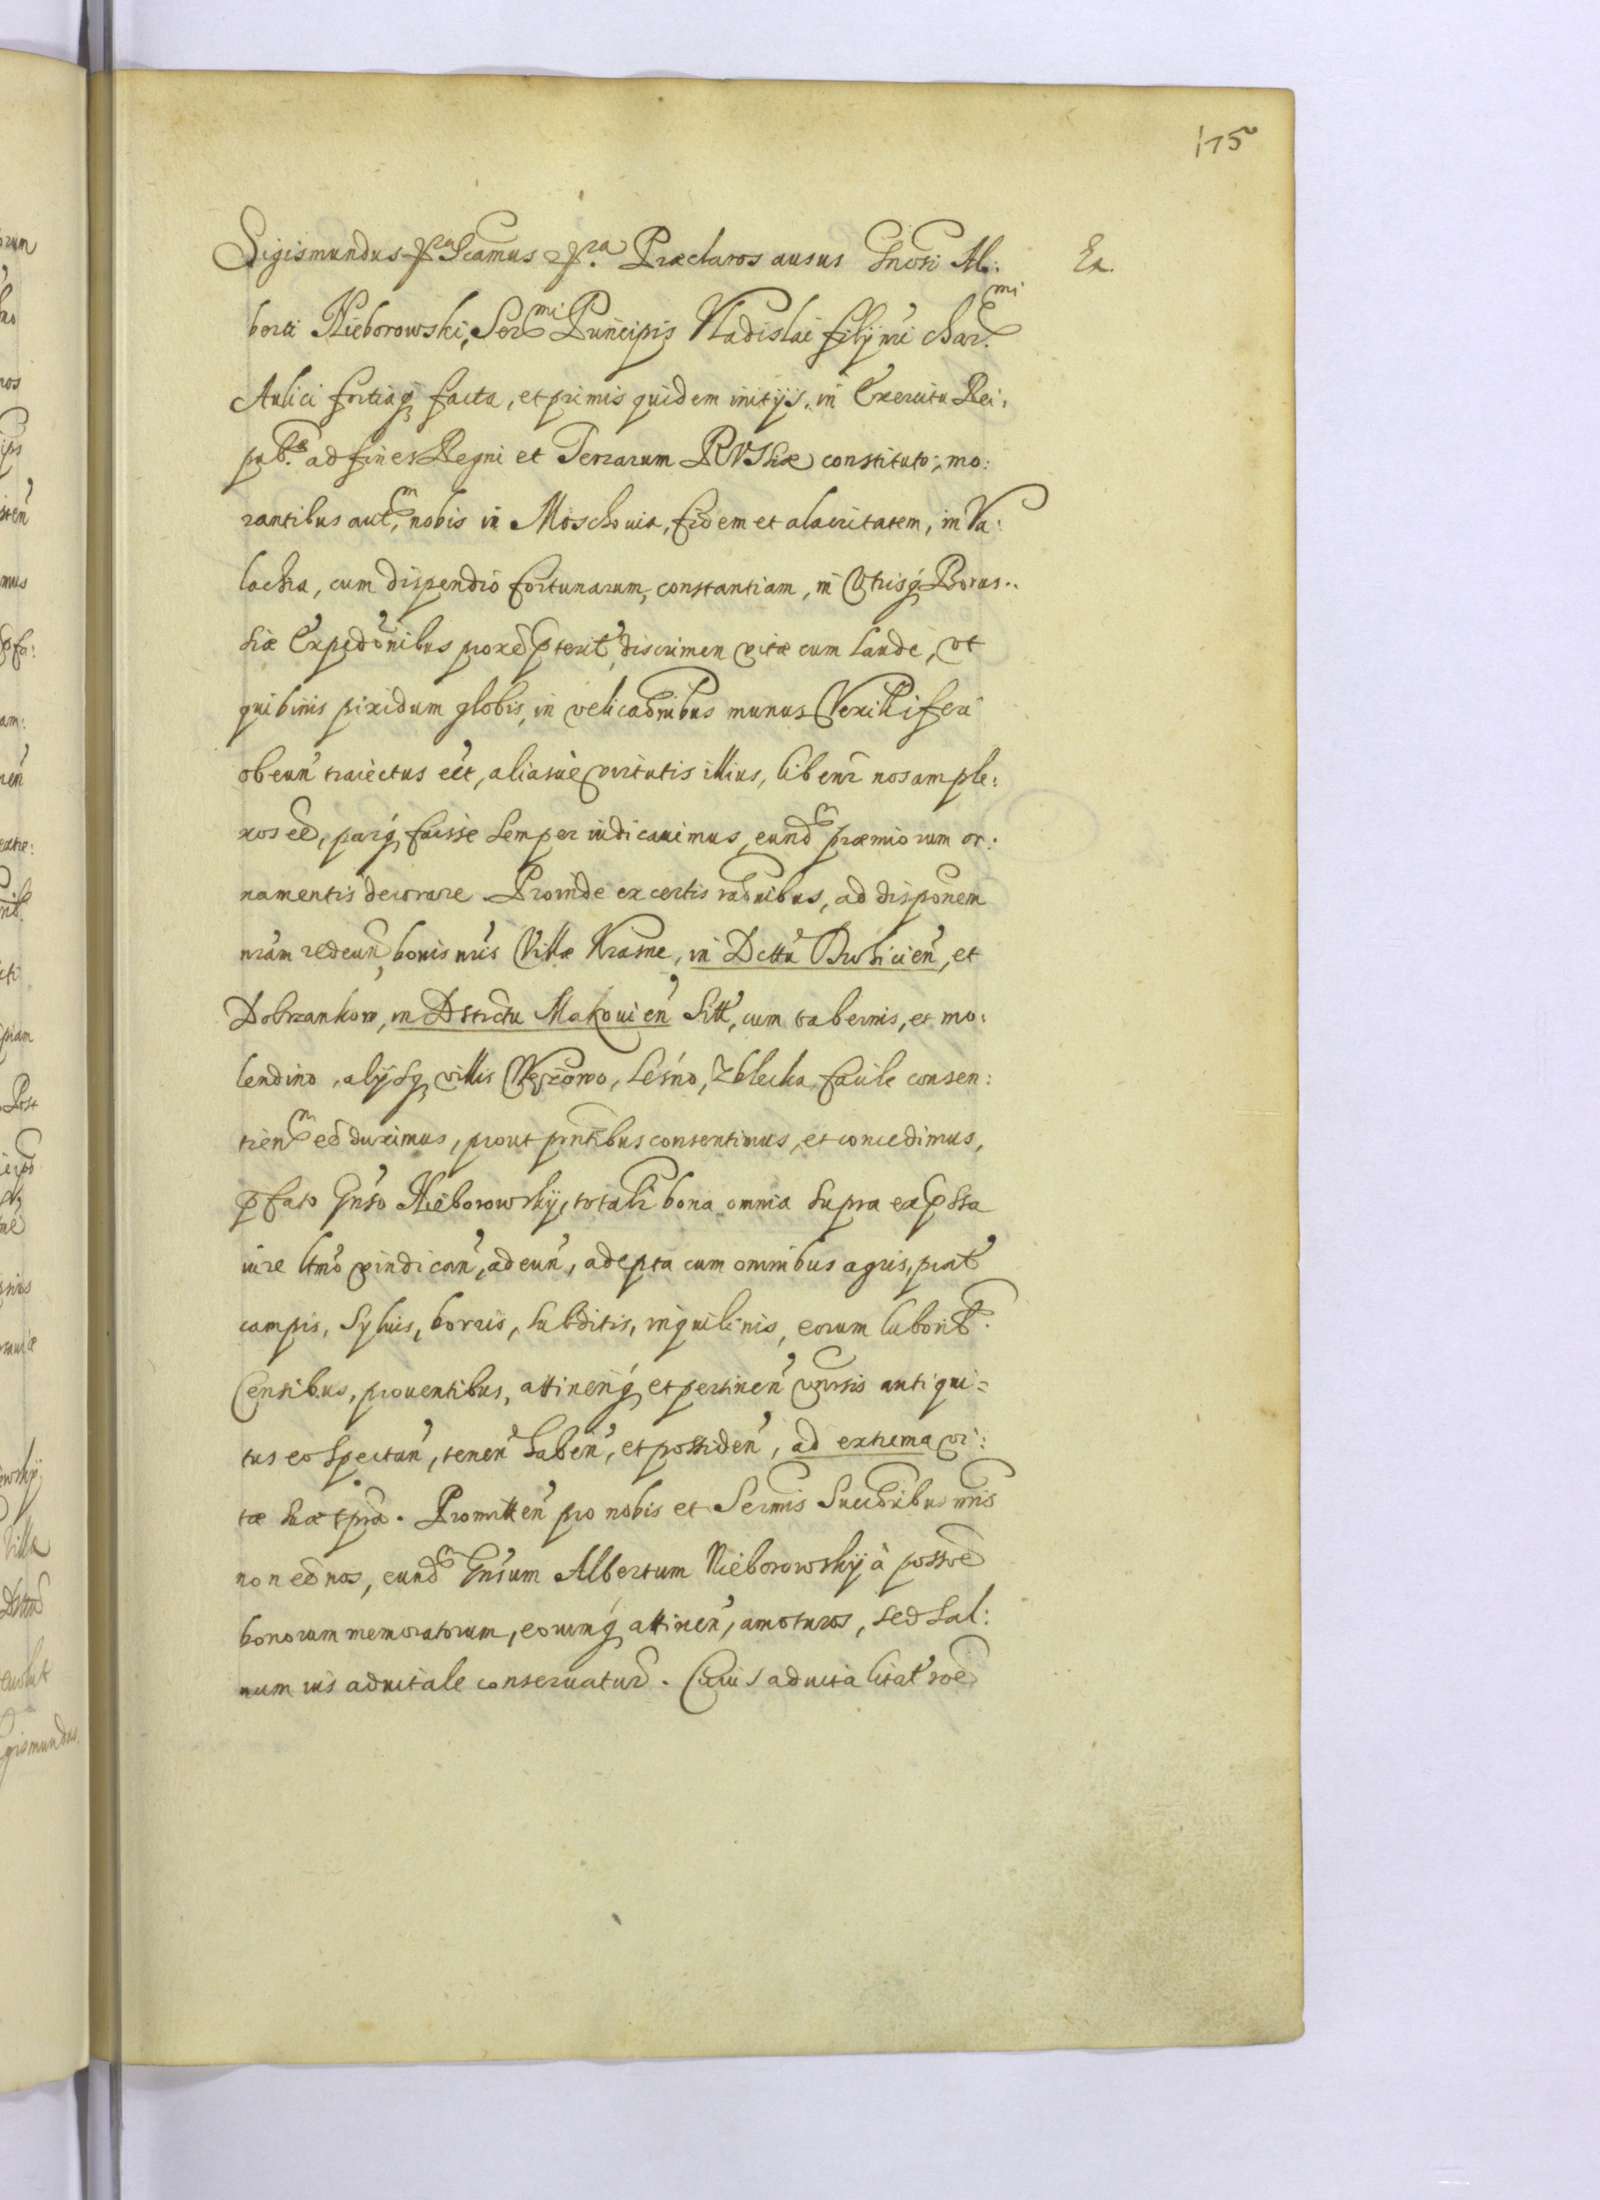 175
Sigismundus &ra Scamus &ra Præclaros ausus Gnosi Al: Ex.
berti Nieborowski, Sermi Principis Vladislai filij nri charmi
Aulici fortiaq facta, et primis quidem initijs, in Exercitu Rei:
pubcæ ad fines Regni et Terrarum RVSsiæ constituto; mo:
rantibus autm nobis in Moschouia, fidem et alacritatem, in Va:
lachia, cum dispendio fortunarum, constantiam, in Vtrisq Borus:
siæ Expedonibus discrimen vitæ cum laude, vt
qui binis pixidum globis, in velicaonibus munus Vexilliferi
obeun traiectus eet, aliasue virtutis illius, libenr nos ample:
xos ee, parq fuisse semper iudicauimus, eundm præmiorum or:
namentis decorare. Proinde ex certis raonibus, ad disponem
nram redeun, bonis nris Villæ Krasne, in Dettu, et
Dobrzankow, in Dstrictu Makouien Sitt, cum tabernis, et mo:
lendino, alijsq villis Węzowo, Leśno, Zblecha, facile consen:
tienm ee duximus, prout pntibus consentimus, et concedimus,
pfato Gnso Nieborowskij, vt talr bona omnia supra expssa
iure ltmo vindican, adeun, adepta cum omnibus agris, prat
campis, syluis, borris, subditis, inquilinis, eorum laborib:
Censibus, prouentibus, attinenq et pertinen vnrsis antiqui=
tus eo spectan, tenen haben, et possiden, ad extrema vi:
tæ suæ tpra. Promitten pro nobis et Sermis Succoribus nris
non ee nos, eundm Gnsum Albertum Nieborowskij à possoe
bonorum memoratorum, eorumq attinen, amoturos, sed sal:
uum ius aduitale conseruatur. Cuius aduitalitat roe